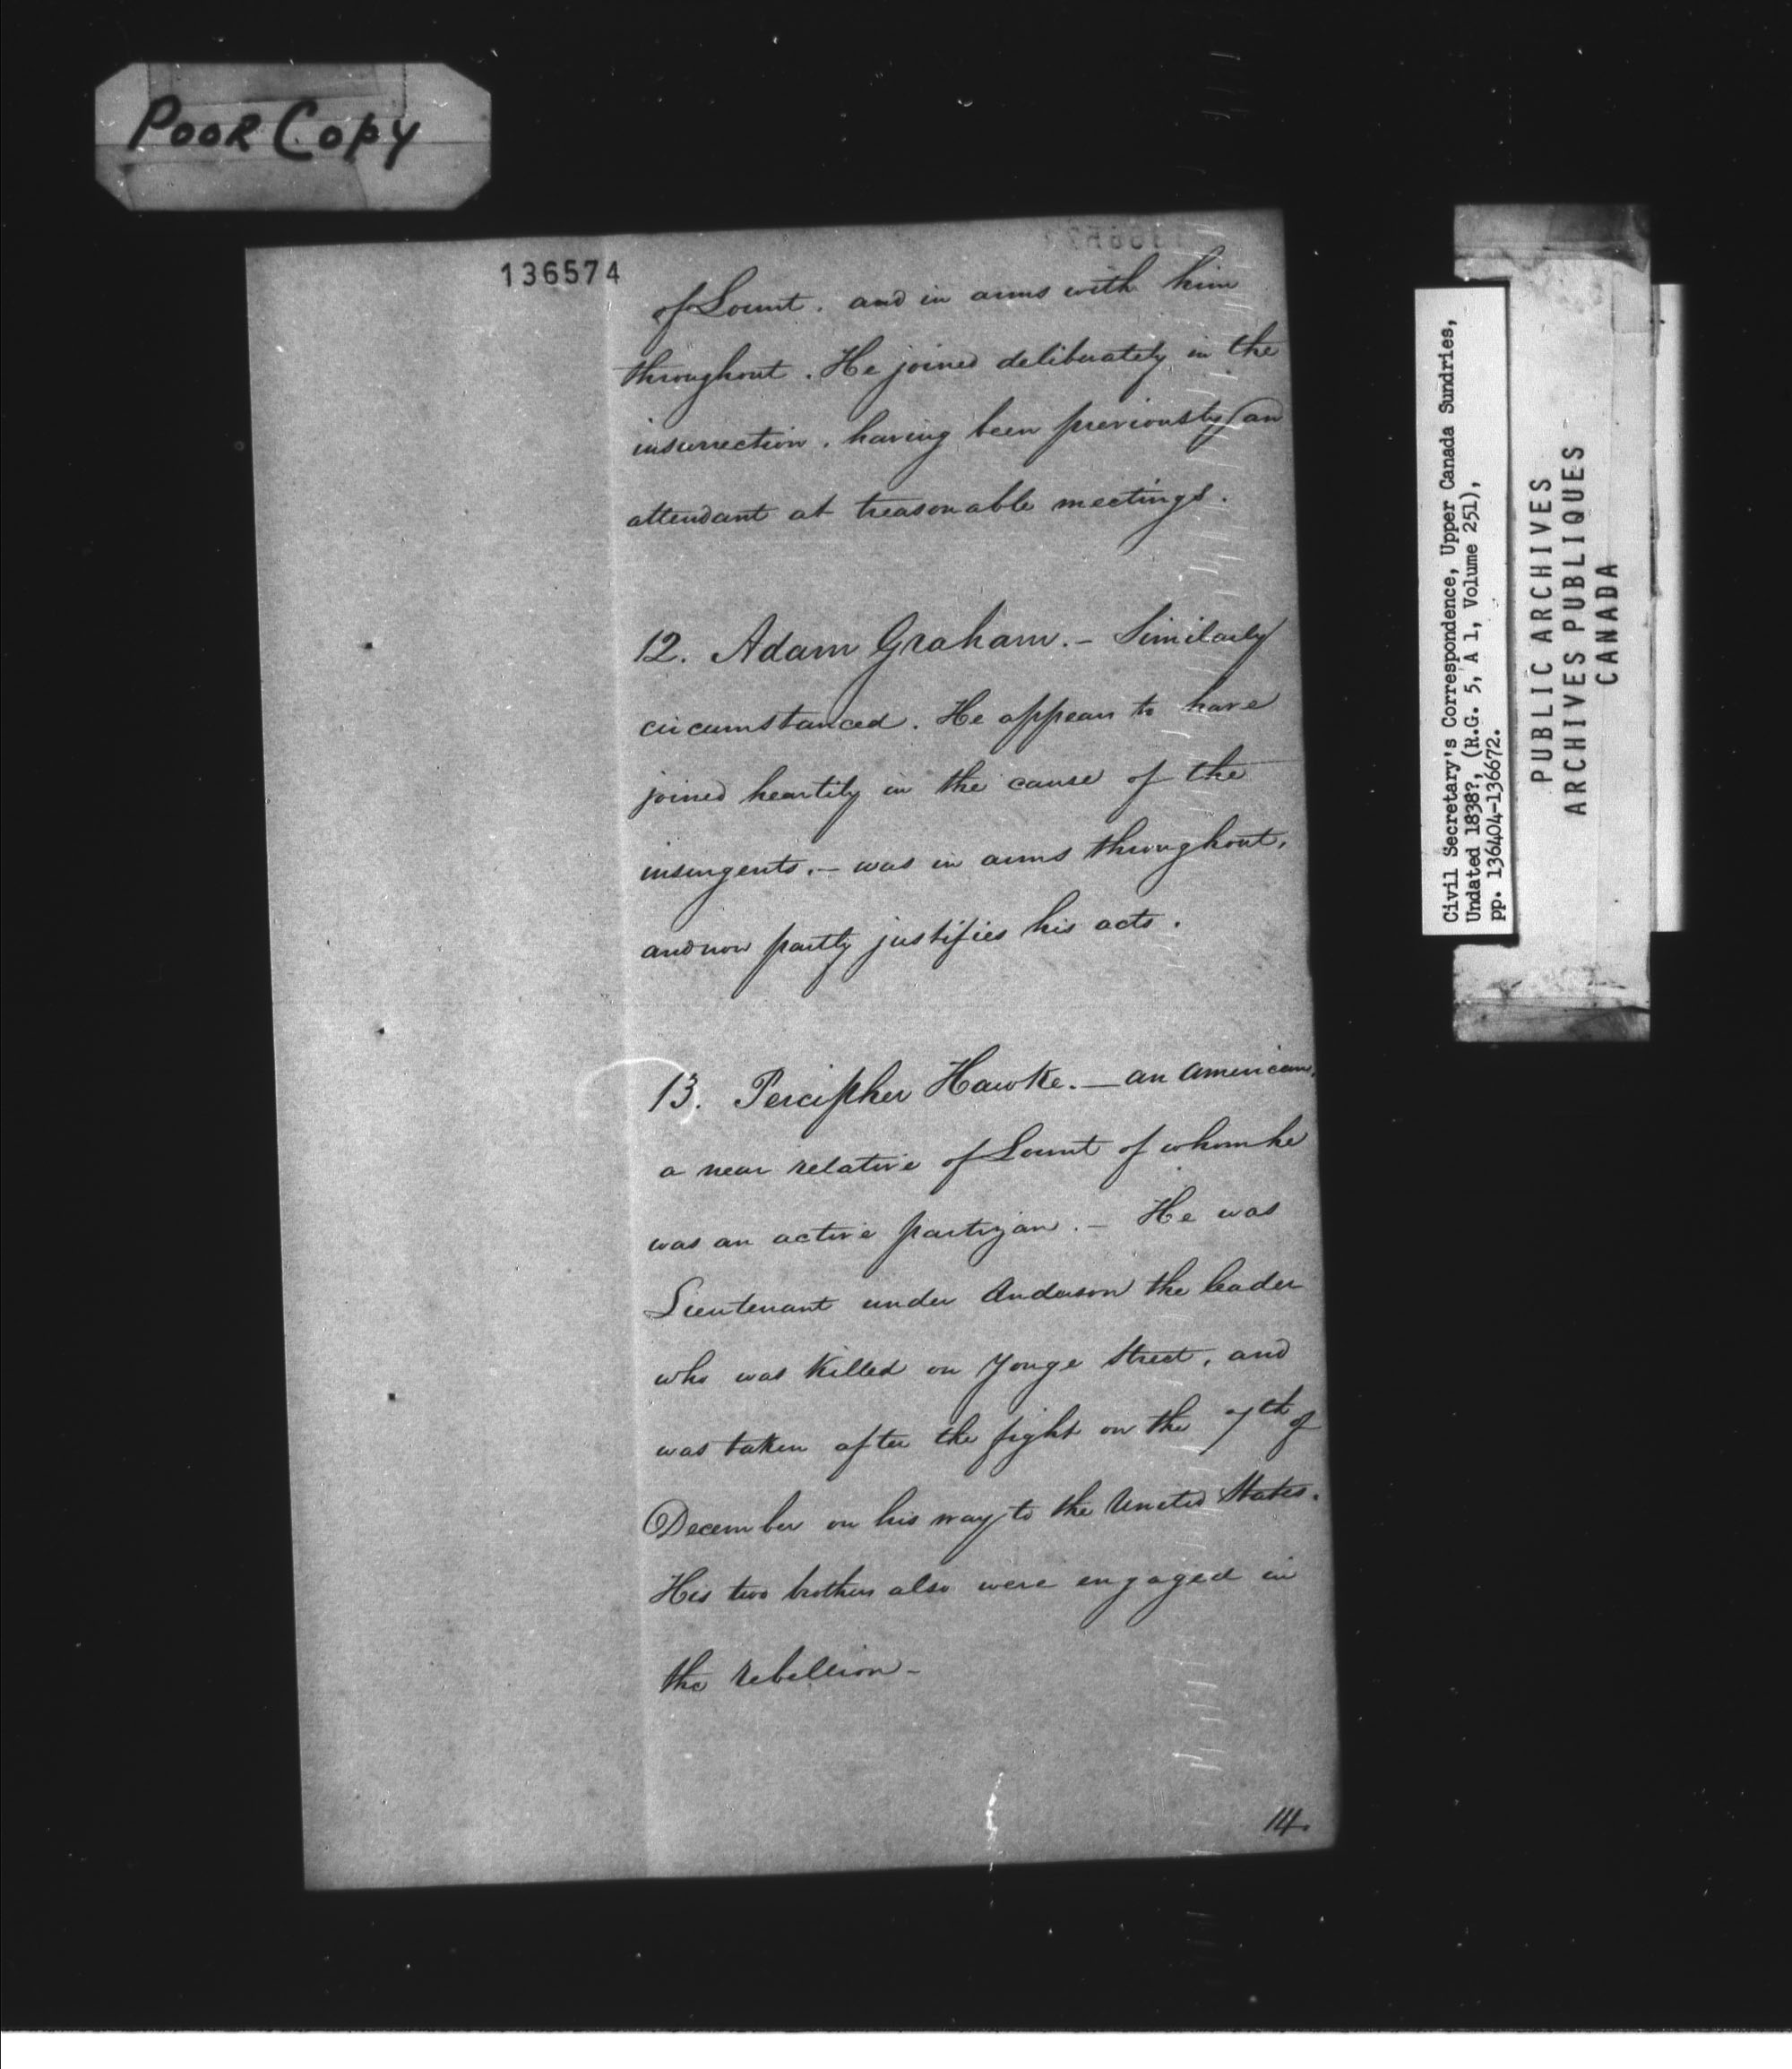 POOR COPY
136574
of Lount. and in arms with him
throughout. He joined deliberately in the
insurrection, having been previously an
attendant at treasonable meetings.
12. Adam Graham. - Similarly
circumstanced. He appears to have
joined heartily in the cause of the
insurgents. - was in arms throughout,
and now partly justifies his acts.
13. Percipher Hawke. - an American,
a near relative of Lount of whom he
was an active partizan. - He was
Lieutenant under Anderson the leader
who was killed on Yonge Street, and
was taken after the fight on the 7th of
December on his way to the United States.
His two brothers also were engaged in
the rebellion -
14.
Civil Secretary's Correspondence, Upper Canada Sundries,
Undated 1838?, (R.G. 5, A 1, Volume 251),
pp. 136404-136672.
PUBLIC ARCHIVES
ARCHIVES PUBLIQUES
CANADA